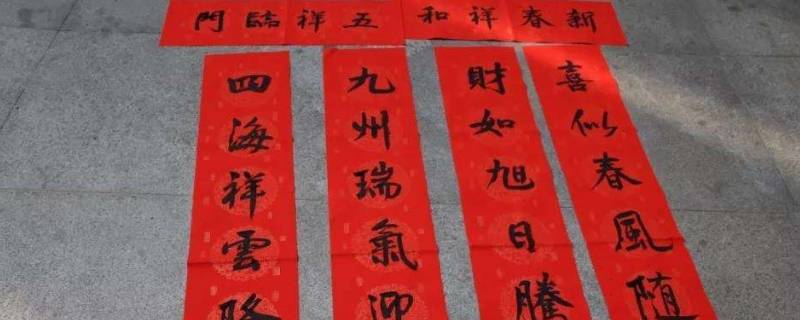 新春祥和
五祥臨門
喜似春風隨
財如旭日騰
九州瑞氣迎
四海祥雲